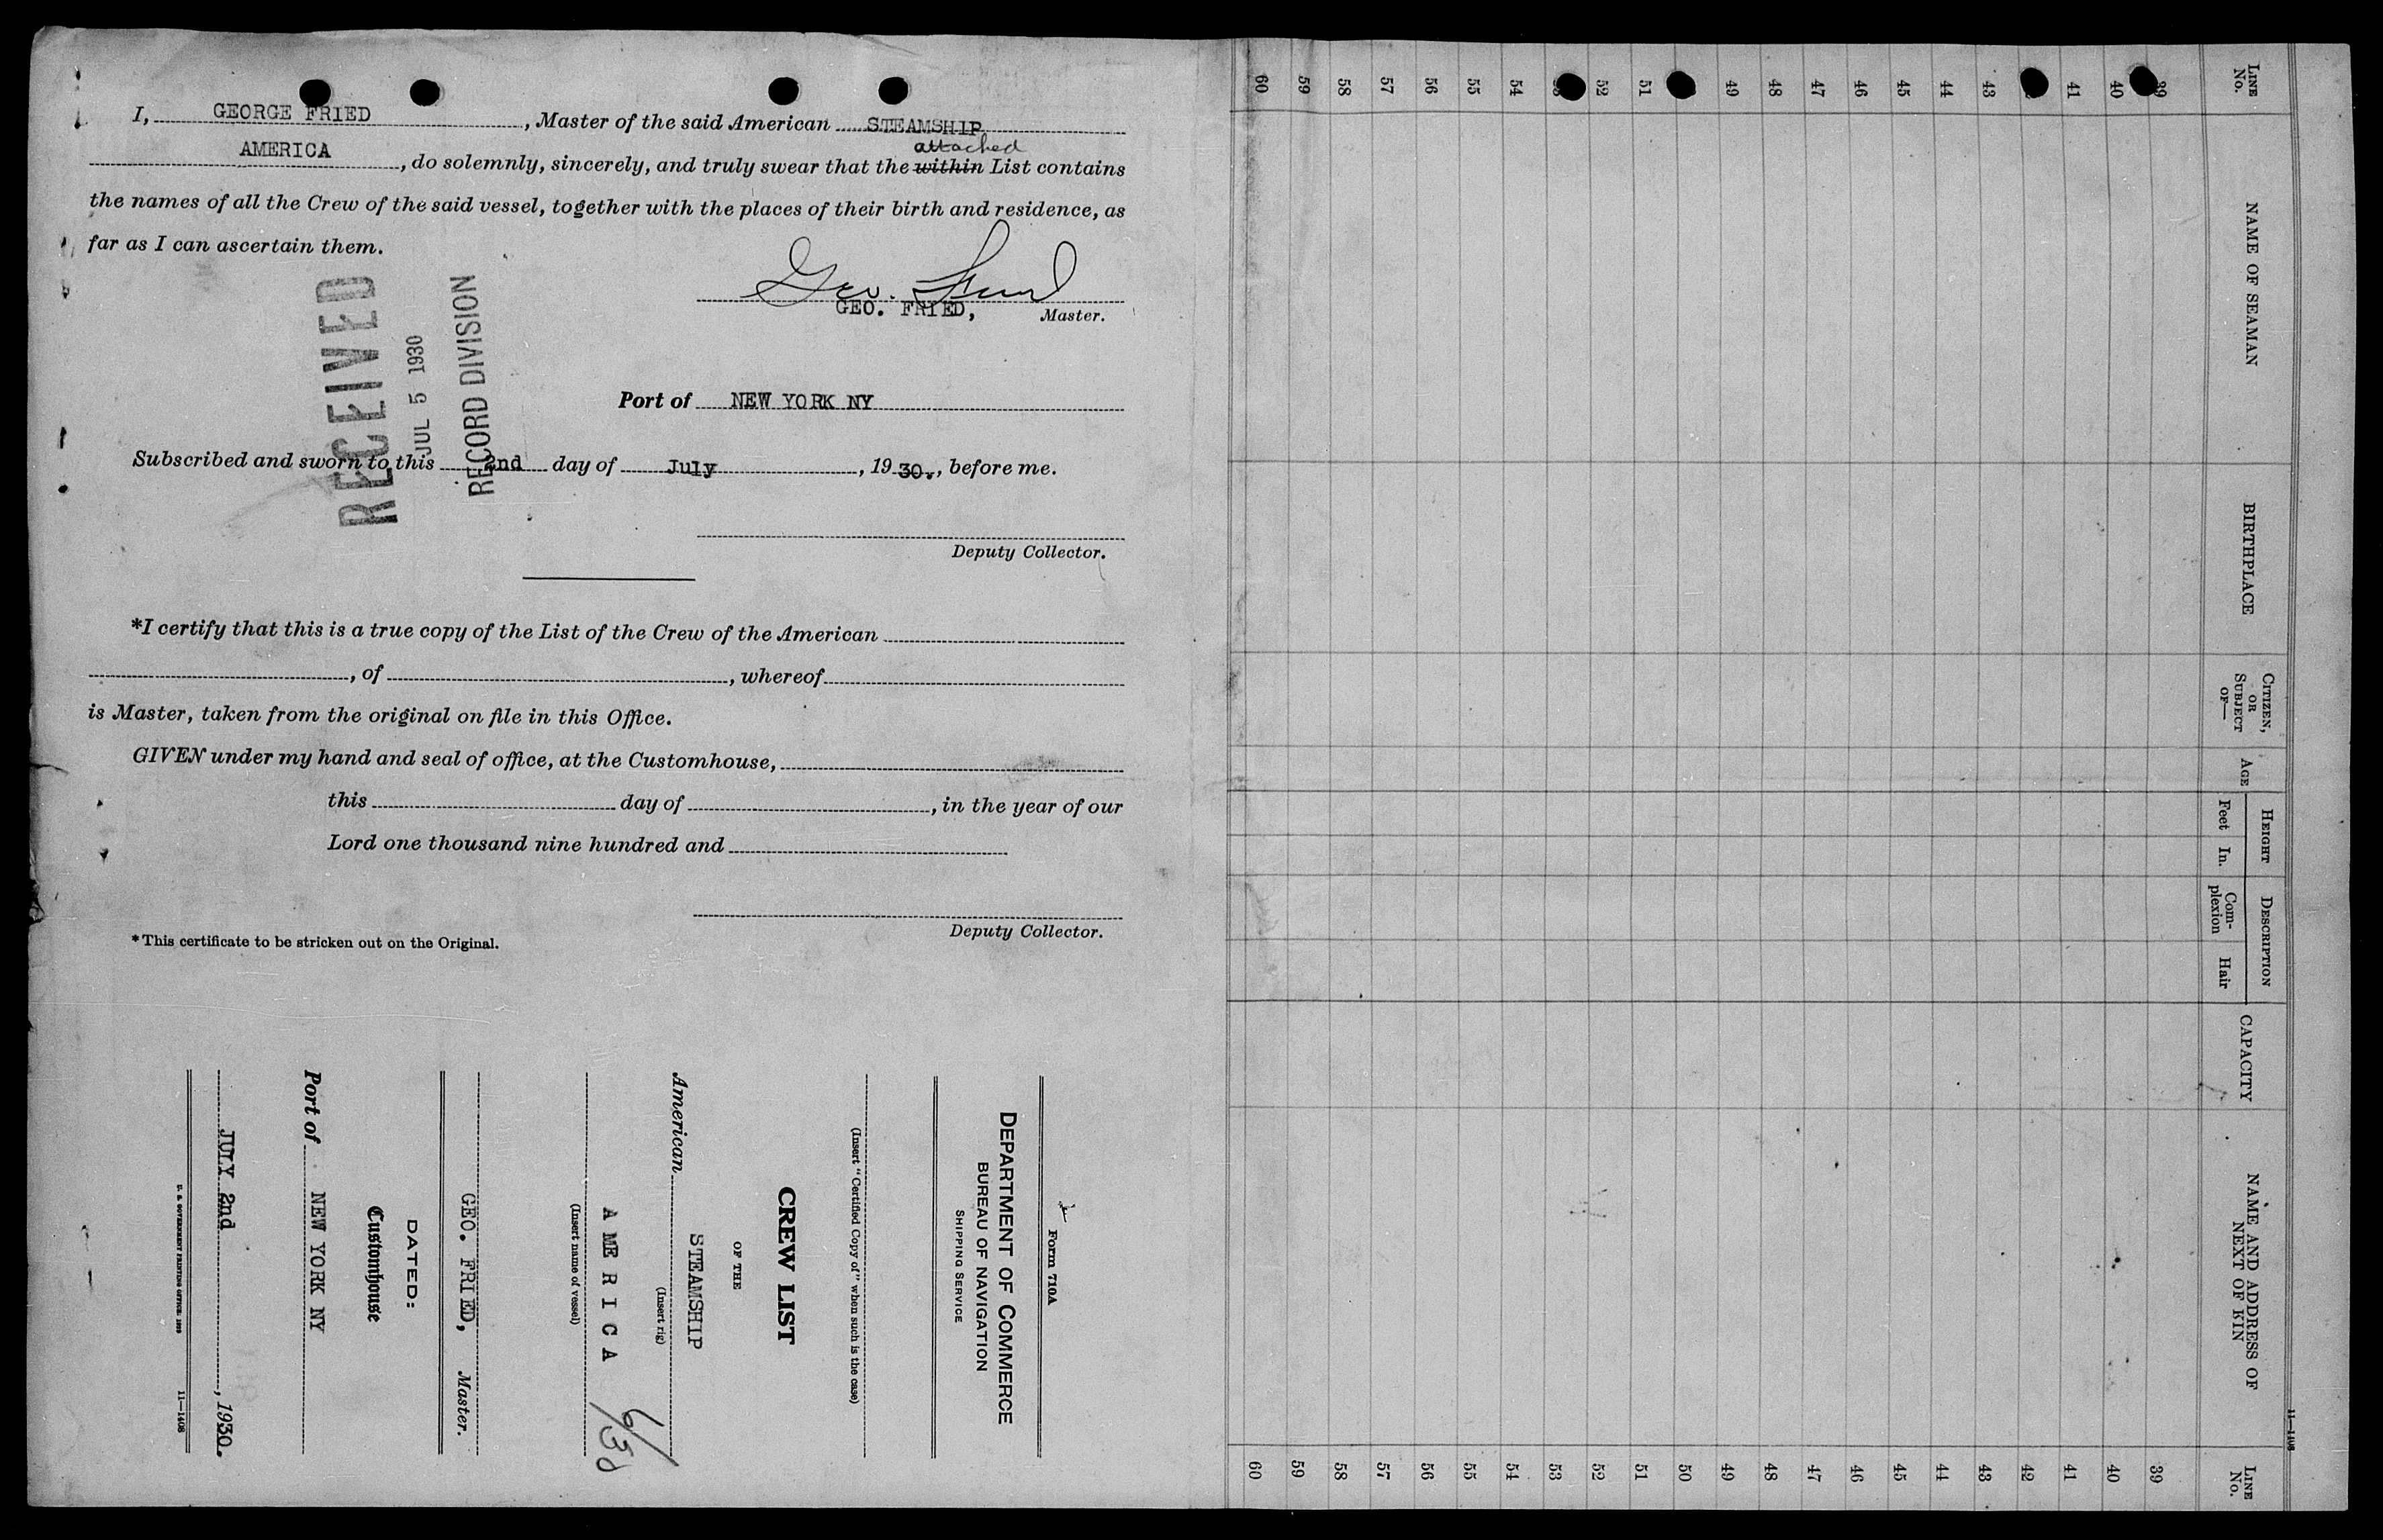 I, GEORGE FRIED, Master of the said American STEAMSHIP
attached
AMERICA, do solemnly, sincerely, and truly swear that the within List contains
the names of all the Crew of the said vessel, together with the places of their birth and residence, as
far as I can ascertain them.
Geo. Fried
GEO. FRIED, Master.
RECEIVED
JUL 5 1930
RECORD DIVISION
Port of NEW YORK NY
Subscribed and sworn to this 2nd day of July, 1930., before me.
Deputy Collector.
*I certify that this is a true copy of the List of the Crew of the American
, of , whereof
is Master, taken from the original on file in this Office.
GIVEN under my hand and seal of office, at the Customhouse,
this day of , in the year of our
Lord one thousand nine hundred and
Deputy Collector.
*This certificate to be stricken out on the Original.
Form 710A
DEPARTMENT OF COMMERCE
BUREAU OF NAVIGATION
SHIPPING SERVICE
(Insert "Certified Copy of" when such is the case)
CREW LIST
OF THE
American STEAMSHIP
(Insert rig)
AMERICA
(Insert name of vessel)
6/30
GEO. FRIED, Master.
DATED:
Customhouse
Port of NEW YORK NY
JULY 2nd, 1930.
U. S. GOVERNMENT PRINTING OFFICE: 1929 11—1408
11—1408
LINE No.
NAME OF SEAMAN
BIRTHPLACE
CITIZEN, OR SUBJECT OF—
AGE
HEIGHT
Feet In.
DESCRIPTION
Complexion Hair
CAPACITY
NAME AND ADDRESS OF NEXT OF KIN
LINE No.
39 39
40 40
41 41
42
43 43
44 44
45 45
46 46
47 47
48 48
49 49
50
51 51
52 52
53
54 54
55 55
56 56
57 57
58 58
59 59
60 60